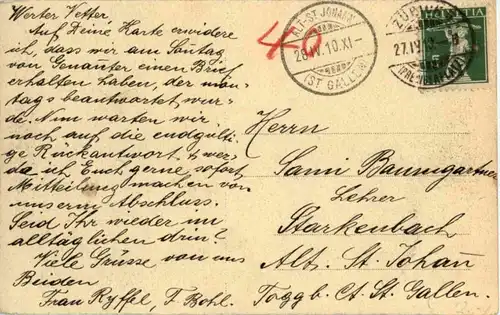 Werter Vetter.
Auf Deine Karte erwidere
ich, dass wir am Sonntag
von Genannter einen Brief
erhalten haben, der mon-
tags beantwortet wur-
de. Nun warten wir
noch auf die endgülti-
ge Rückantwort, & wer-
de ich Euch gerne sofort
Mitteilung machen von
unserm Abschluss.
Seid Ihr wieder im
alltäglichen drin?
Viele Grüsse von uns
Beiden
Frau Ryffel, F. Bohl.
40
ALT-ST. JOHANN
28.IV.10.XI-
(ST. GALLEN)
ZÜRICH
27.IV.10.
HELVETIA
Herrn
Sami Baumgartner
Lehrer
Starkenbach
Alt. St. Johan
Toggb. Ct. St. Gallen.